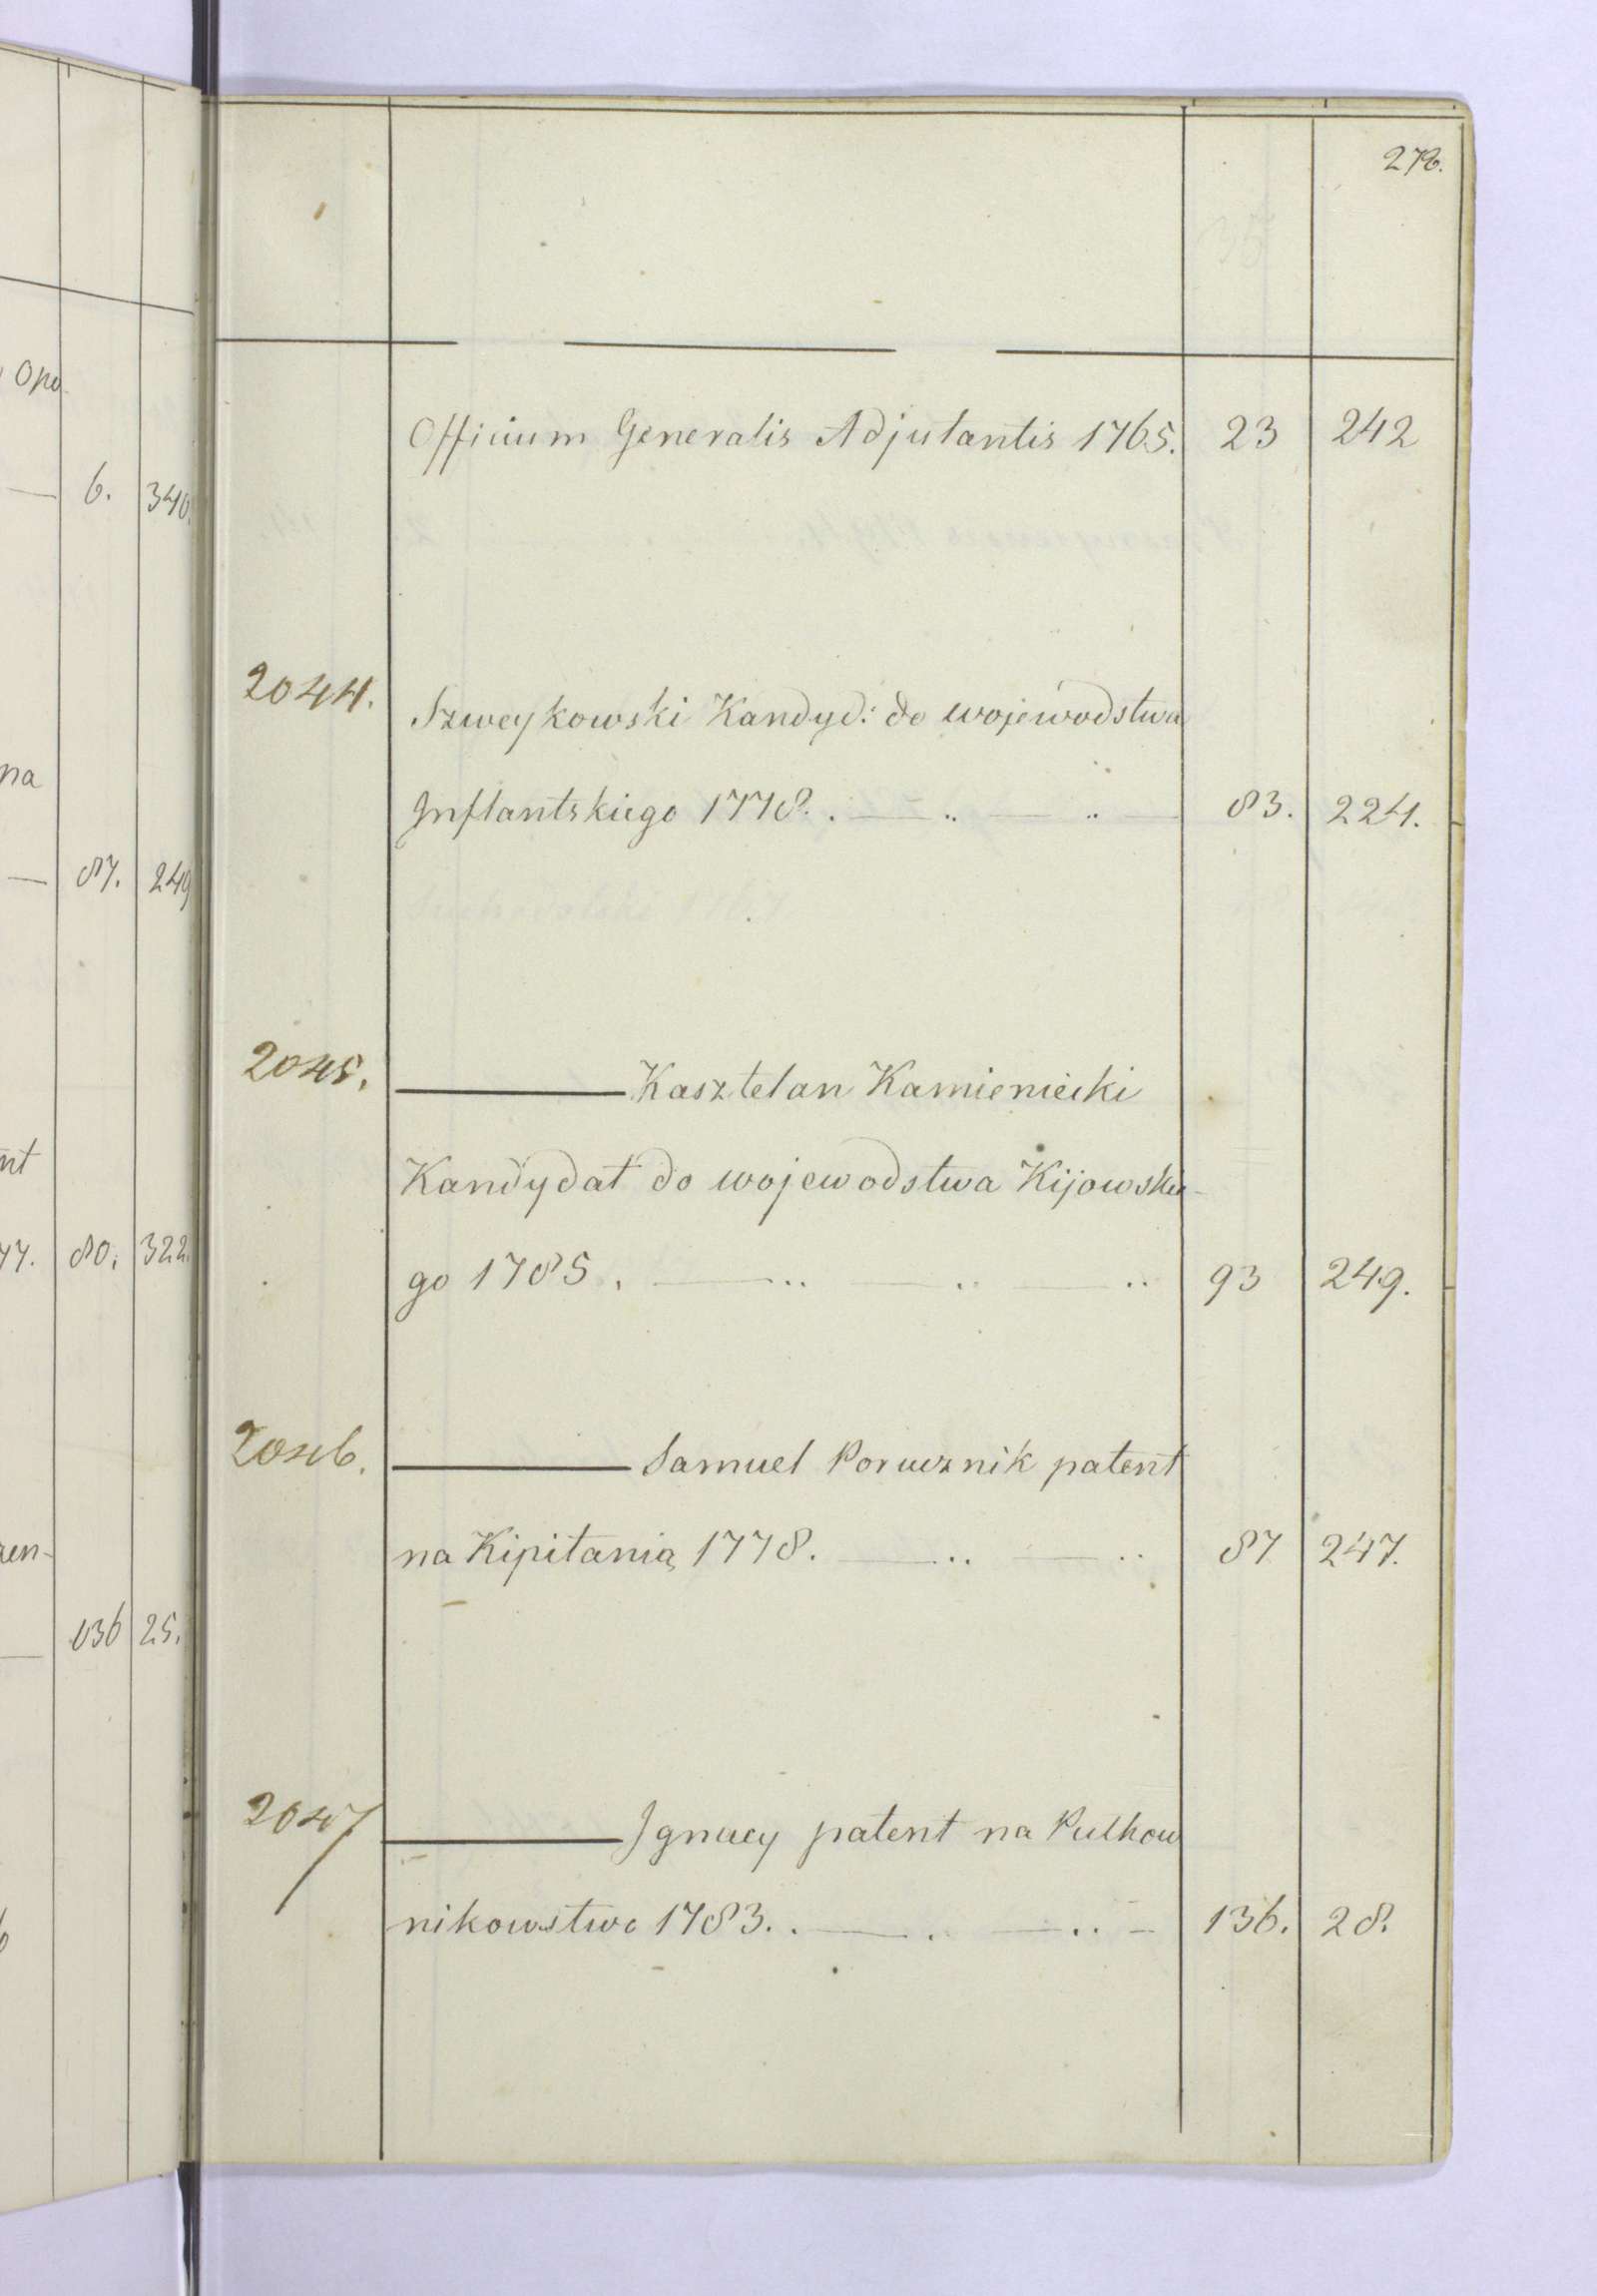 278.
Officium Generalis Adjutantis 1765. 23 242
2044. Szweykowski Kandyd: do wojewodstwa
Inflantskiego 1778. 83. 224.
2045. Kasztelan Kamieniecki
Kandydat do wojewodstwa Kijowskie-
go 1785. 93 249.
2046. Samuel Porucznik patent
na Kipitanią 1778. 87 247.
2047 Ignacy patent na Pulkow
nikowstwo 1783. 136. 28.
6. 340.
na
87. 249
nt
77. 80. 322.
136 25.